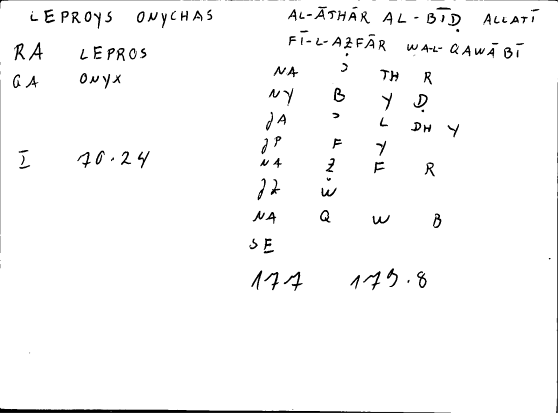 LEPROYS ONYCHAS
RA LEPROS
QA ONYX
I 76.24
AL-ĀTHĀR AL-BĪḌ ALLATĪ
FĪ-L-AẒFĀR WAL-QAWĀBĪ
NA ʾ TH R
NY B Y Ḍ
JA ʾ L DH Y
JP F Y
NA Ẓ F R
JZ W
NA Q W B
SE
177 179.8